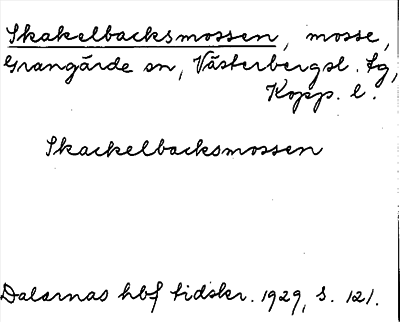 Skakelbacksmossen, mosse,
Grangärde sn, Västerbergsl. tg,
Kopp. l.
Skackelbacksmossen
Dalarnas hbf tidskr. 1929, s. 121.